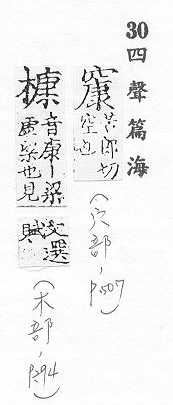 30四聲篇海
䆲 苦郎切
空也
(穴部, P.507)
槺 音康丨梁
虛梁也見
文選
賦
(木部, P.394)